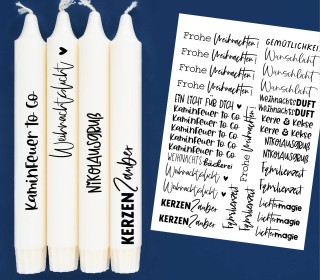 Kaminfeuer to Go
Weihnachtslicht
NIKOLAUSGRUß
KERZENZauber
Frohe Weihnachten!
Frohe Weihnachten!
Frohe Weihnachten!
Frohe Weihnachten!
EIN LICHT FÜR DICH
Kaminfeuer to Go
Kaminfeuer to Go
Kaminfeuer to Go
Kaminfeuer to Go
WEIHNACHTSbäckerei
Weihnachtslicht
Weihnachtslicht
KERZENZauber
KERZENZauber
Frohe Weihnachten!
Familienzeit
Familienzeit
GEMÜTLICHKEIT
Wunschlicht
Wunschlicht
Wunschlicht
WeihnachtsDUFT
WeihnachtsDUFT
Kerze & Kekse
Kerze & Kekse
NIKOLAUSGRUß
NIKOLAUSGRUß
Familienzeit
Familienzeit
Lichtermagie
Lichtermagie
Lichtermagie